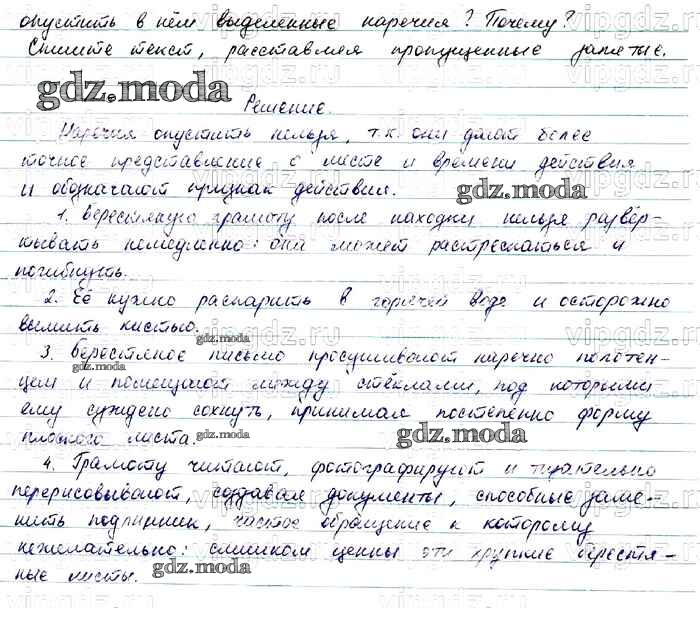 опустить в нём выделенные наречия? Почему?
Спишите текст, расставляя пропущенные запятые.
gdz.moda
Решение.
Наречия опустить нельзя, т.к. они дают более
точное представление о месте и времени действия
и обозначают признак действия.
gdz.moda
1. Берестяную грамоту после находки нельзя развёр-
тывать немедленно: она может растрескаться и
погибнуть.
2. Её нужно распарить в горячей воде и осторожно
вымыть кистью.
gdz.moda
3. Берестяное письмо просушивают полотен-
цем и помещают между стёклами, под которыми
ему суждено сохнуть, принимая постепенно форму
плоского листа.
gdz.moda
gdz.moda
4. Грамоту читают, фотографируют и тщательно
перерисовывают, создавая документы, способные заме-
нить подлинник, частое обращение к которому
нежелательно: слишком ценны эти хрупкие берестя-
ные листы.
gdz.moda
vipgdz.ru